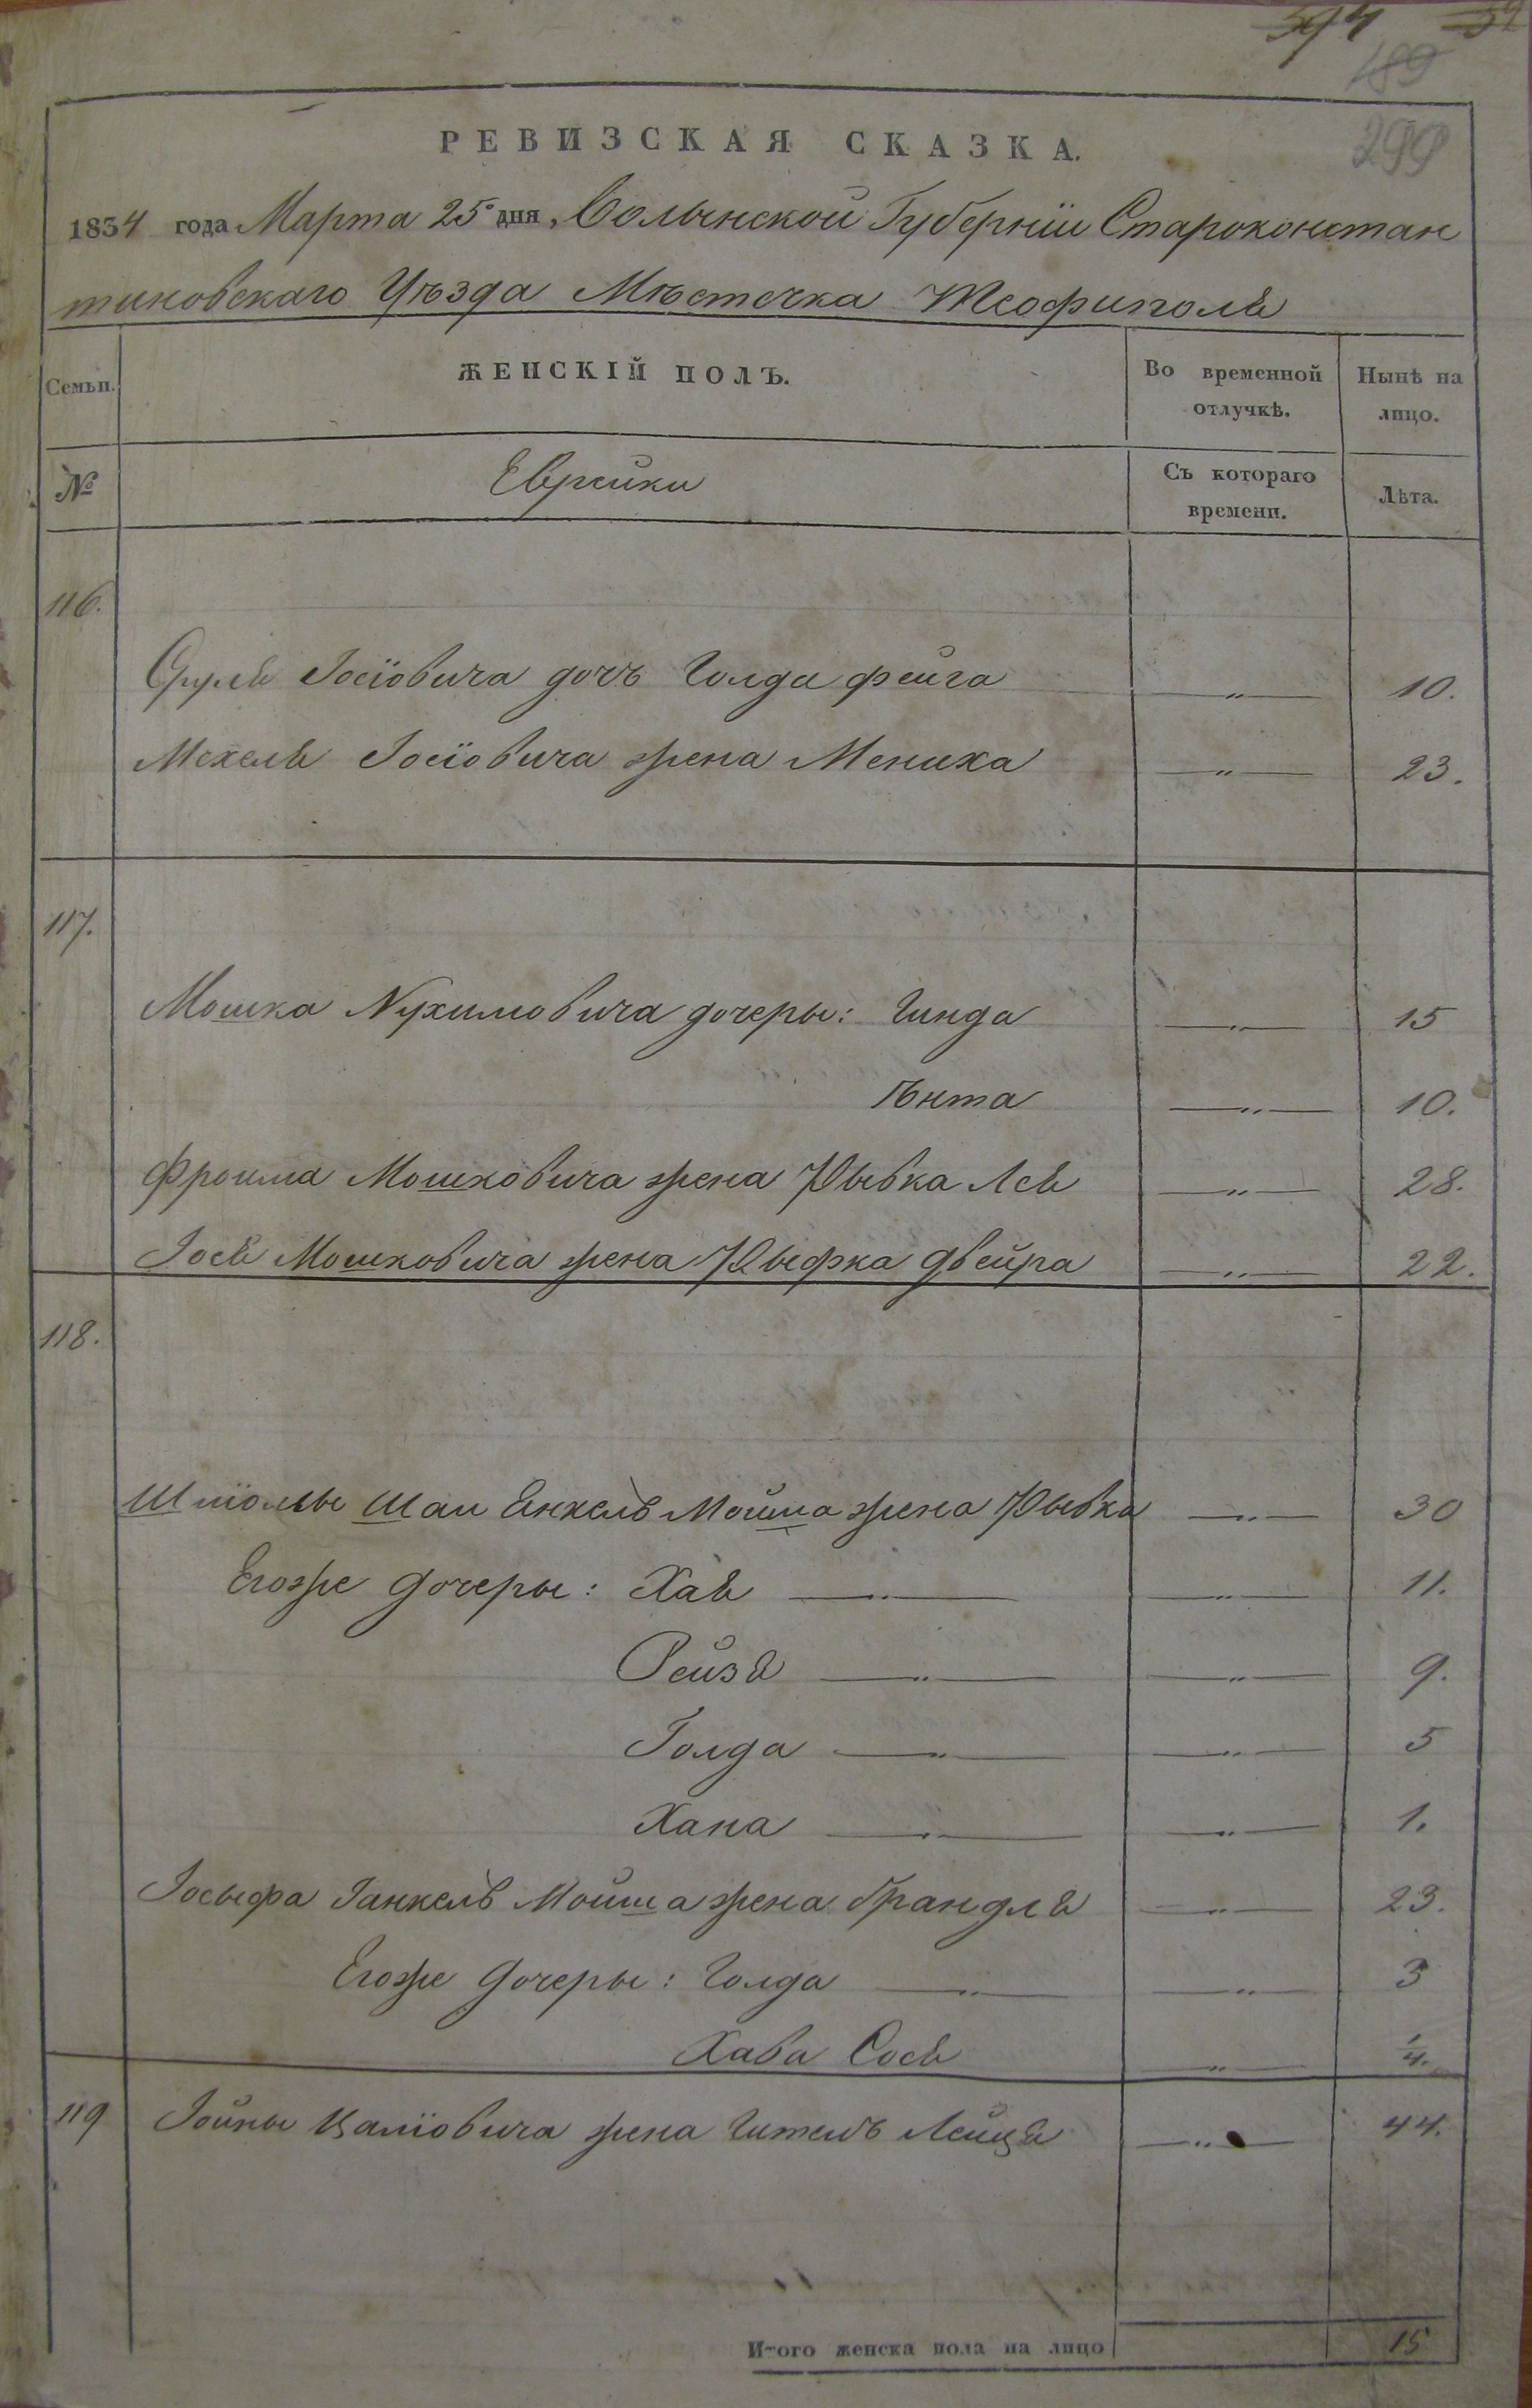 594
489
299
РЕВИЗСКАЯ СКАЗКА.
1834 года Марта 25 дня, Волынской Губернїи Староконстан
тиновскаго Уѣзда Мѣстечка Теофиполя
Семьи. ЖЕНСКІЙ ПОЛЪ. Во временной отлучкѣ. Нынѣ на лицо.
№ Еврейки Съ котораго времени. Лѣта.
116.
Сруля Іосїовича дочь Голда фейга — „ — 10.
Мехеля Іосїовича жена Мениха — „ — 23.
117.
Мошка Нухимовича дочеры: Гинда — „ — 15
Ѣнта — „ — 10.
Фроима Мошковича жена Рывка Лея — „ — 28.
Іося Мошковича жена Рыфка Двейра — „ — 22.
118.
Шмїолы Шаи Енкель Мойша жена Рывка — „ — 30
Егоже Дочеры: Хая — „ — — „ — 11.
Рейзя — „ — — „ — 9.
Голда — „ — — „ — 5
Хана — „ — — „ — 1.
Іосыфа Іанкель Мойша жена Брандля — „ — 23.
Егоже Дочеры: Голда — „ — — „ — 3
Хава Сося — „ — 1/4.
119 Іойны Цалїовича жена Гитель Лейця — „ — 44.
Итого женска пола на лицо 15